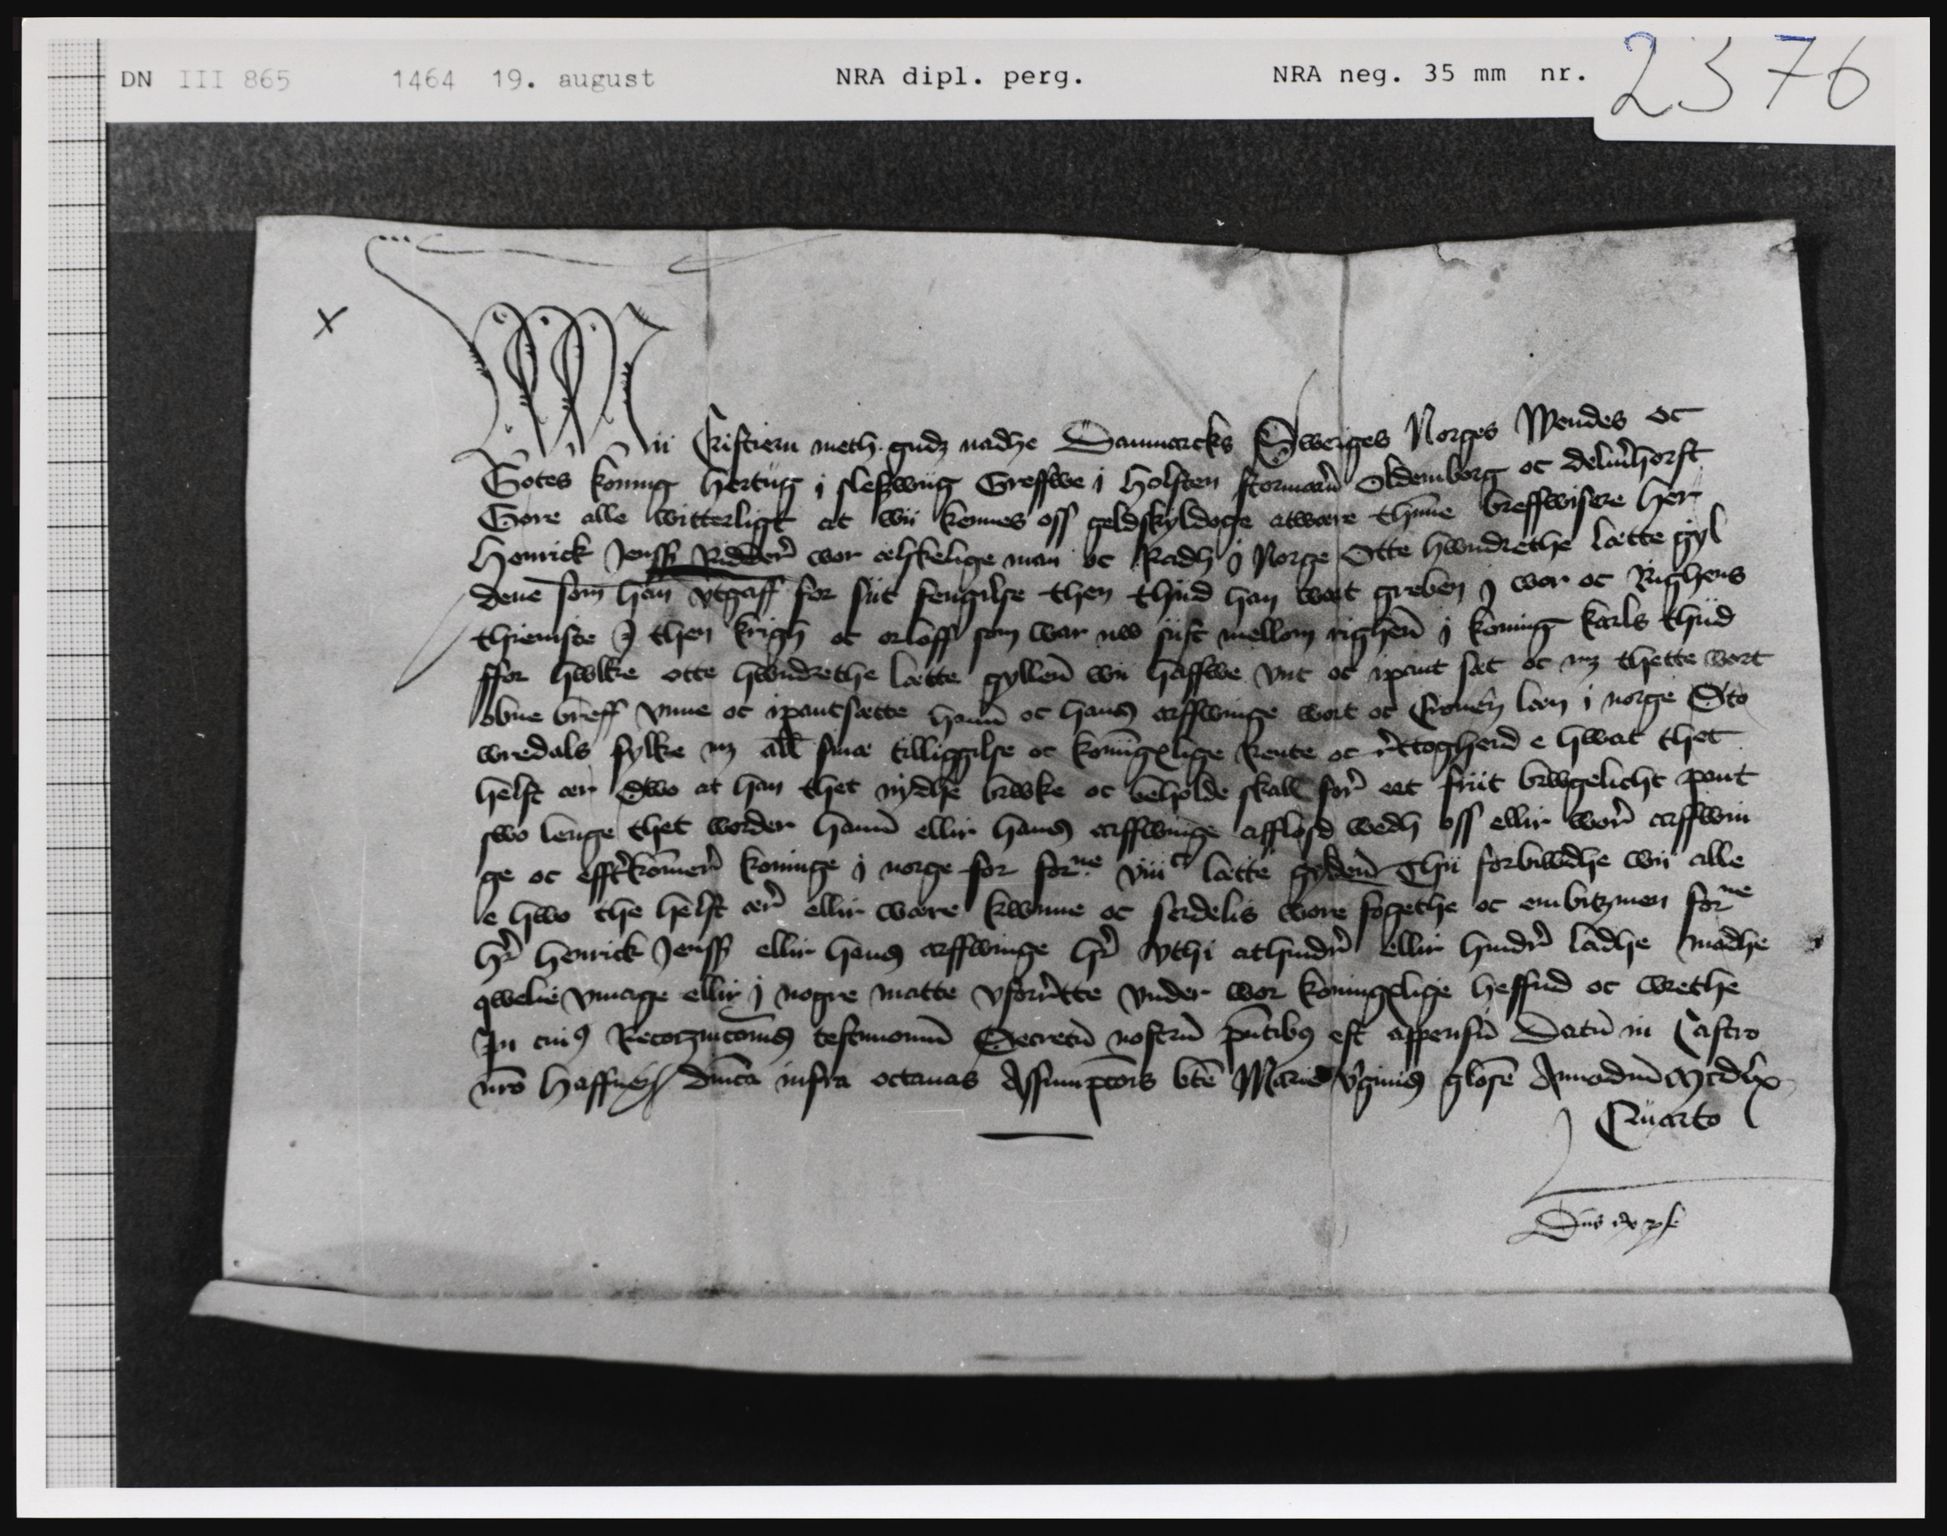 DN III 865 1464 19. august NRA dipl. perg. NRA neg. 35 mm nr. 2376
x
Wii Cristiern meth gudz nadhe Danmarcks Sweriges Norges Wendes oc
Gotes koning hertug i sleszwiig Greffwe i Holsten stormarn Oldemborg oc delmenhorst
Gore alle witterligt at wii kennes oss geldskyldoge atwære thenne breffwisere her
Henrick Jenssz Ridder wor ælskelige man oc Radh j Norge Otte hwndrethe lætte gyl
dene som han vtgaff for siit fengilse then thiid han wort greben j wor oc Righens
thieniste J then krigh oc orloff som war nw siist mellom righen j koning karls thiid
ffor hwlke otte hwndrethe lætte gyllen wii haffwe vnt oc ipant sæt oc mz thette wort
obne breff vnne oc ipantsætte hanum oc hans arffwinge wort oc Cronen læn i norge Sto
wredals sylke mz all sinæ tilliggilse oc koninxlige Rente oc rettogheid e hwat thet
helst ær Swo at han thet nydhe brwke oc beholde skall for eet friit brwgelicht pant
swo lenge thet worder hanum ellir hans arffwinge affløsd wedh oss ellir wor arffwin
ge oc effterkommer koninge j norge for forne viiic lætte gylden Thii forbiwdhe wii alle
e hwo the helst ær ellir wære kwnne oc serdelis wore fogethe oc embitzmen forne
her Henrick Jenssz ellir hans arffwinge her vthi athindre ellir hindre ladhe mødhe
qwelie vmage ellir j nogre matte vforrette vnder wor koninxlige heffnd oc wrethe
In cuius Recognicionis testimonium Secretum nostrum presentibus est appensum Datum in Castro
nostro Haffnensi dominica infra octauas Assumpcionis beate Marie virginis gloriose Annodomini Mcdlx
Quarto
Dominus rex per se